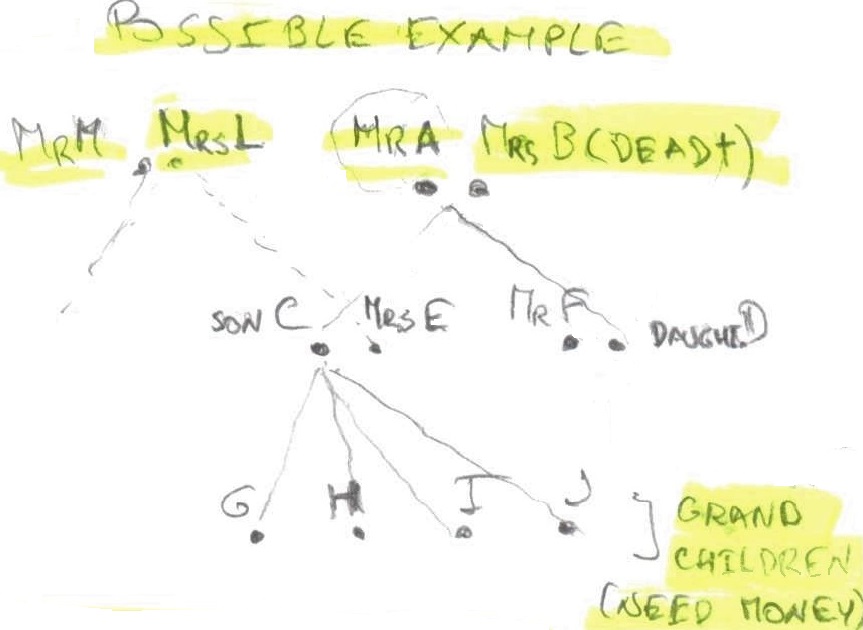 POSSIBLE EXAMPLE
MRM MRSL MRA MRS B (DEAD†)
SON C MRS E MR F DAUGHT.D
G H I J GRAND
CHILDREN
(NEED MONEY)